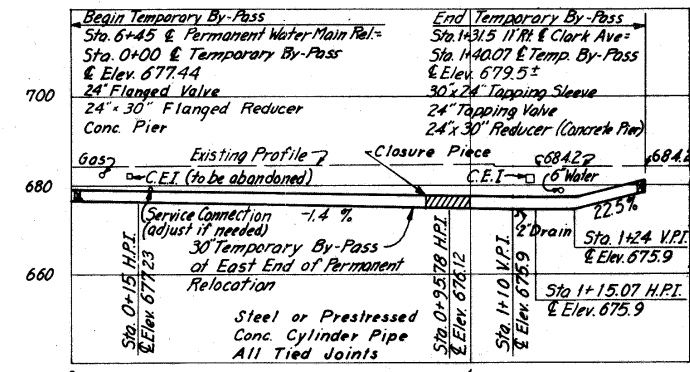 Begin Temporary By-Pass
Sta. 6+45 ℄ Permanent Water Main Rel.=
Sta. 0+00 ℄ Temporary By-Pass
℄ Elev. 677.44
24" Flanged Valve
24" x 30" Flanged Reducer
Conc. Pier
End Temporary By-Pass
Sta. 1+31.5 11' Rt. ℄ Clark Ave=
Sta. 1+40.07 ℄ Temp. By-Pass
℄ Elev. 679.5±
30"x 24" Tapping Sleeve
24" Tapping Valve
24"x 30" Reducer (Concrete Pier)
700
680
660
Gas
Existing Profile
Closure Piece
684.2
684.2
C.E.I. (to be abandoned)
C.E.I
6" Water
Service Connection
(adjust if needed)
-1.4 %
2" Drain
22.5%
30" Temporary By-Pass
at East End of Permanent
Relocation
Sta. 1+24 V.P.I.
℄ Elev. 675.9
Sta 1+15.07 H.P.I.
℄ Elev. 675.9
Steel or Prestressed
Conc. Cylinder Pipe
All Tied Joints
Sta. 0+15 H.P.I.
℄ Elev. 677.23
Sta. 0+95.78 H.P.I.
℄ Elev. 676.12
Sta. 1+10 V.P.I.
℄ Elev. 675.9